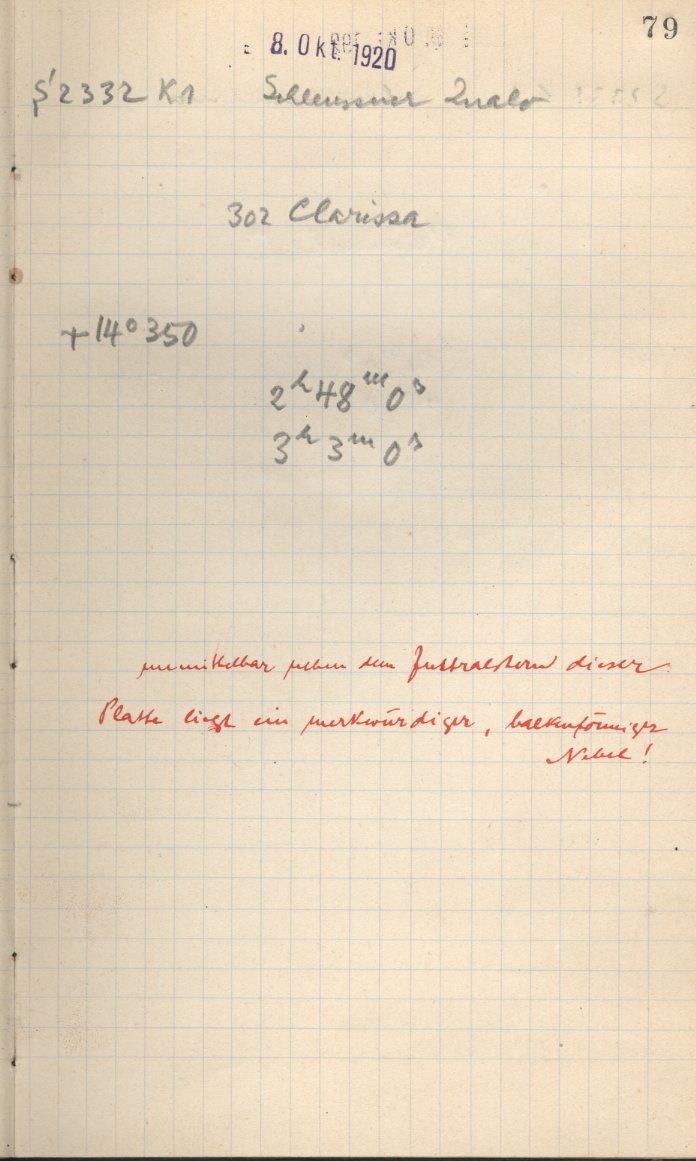 79
8. Okt. 1920
2332 K1 Schleussner
302 Clarissa
+14° 350
2h 48m 0s
3h 3m 0s
unmittelbar neben dem Zentralstern dieser
Platte liegt ein merkwürdiger, balkenförmiger
Nebel!